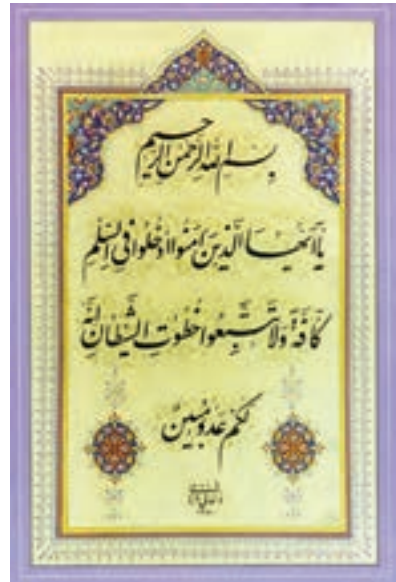 بسم الله الرحمن الرحيم
يا ايها الذين امنوا ادخلوا في السلم
كافة ولا تتبعوا خطوت الشيطان انه
لكم عدو مبين